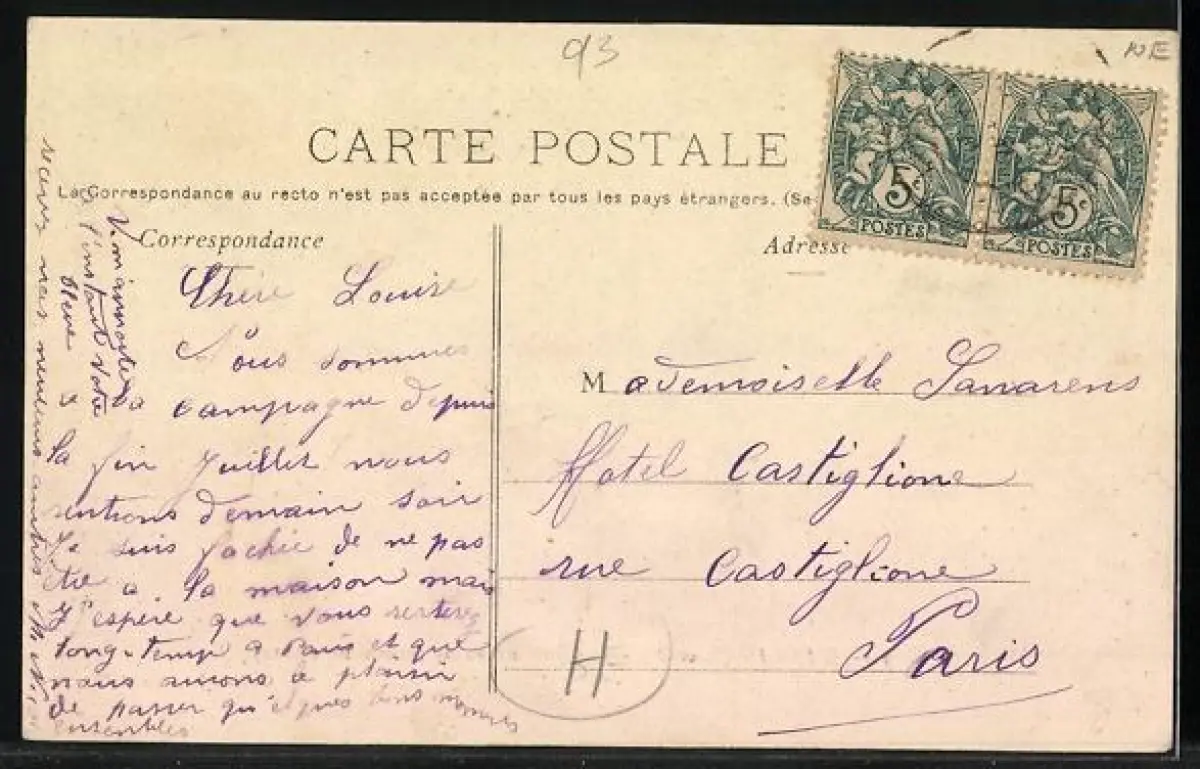 93
NE
CARTE POSTALE
La Correspondance au recto n'est pas acceptée par tous les pays étrangers. (Se
Correspondance
Adresse
5c
POSTES
5c
POSTES
Chère Louise
Nous sommes
à la
campagne depuis
fin Juillet nous
rentrions demain soir
Je suis fachée de ne pas
être a la maison mais
J'espère que vous resterez
long-temp a Paris et que
nous aurons le plaisir
de passer quelques
ensembles
l'instant votre
Mademoiselle
Hotel Castiglione
rue Castiglione
Paris
H